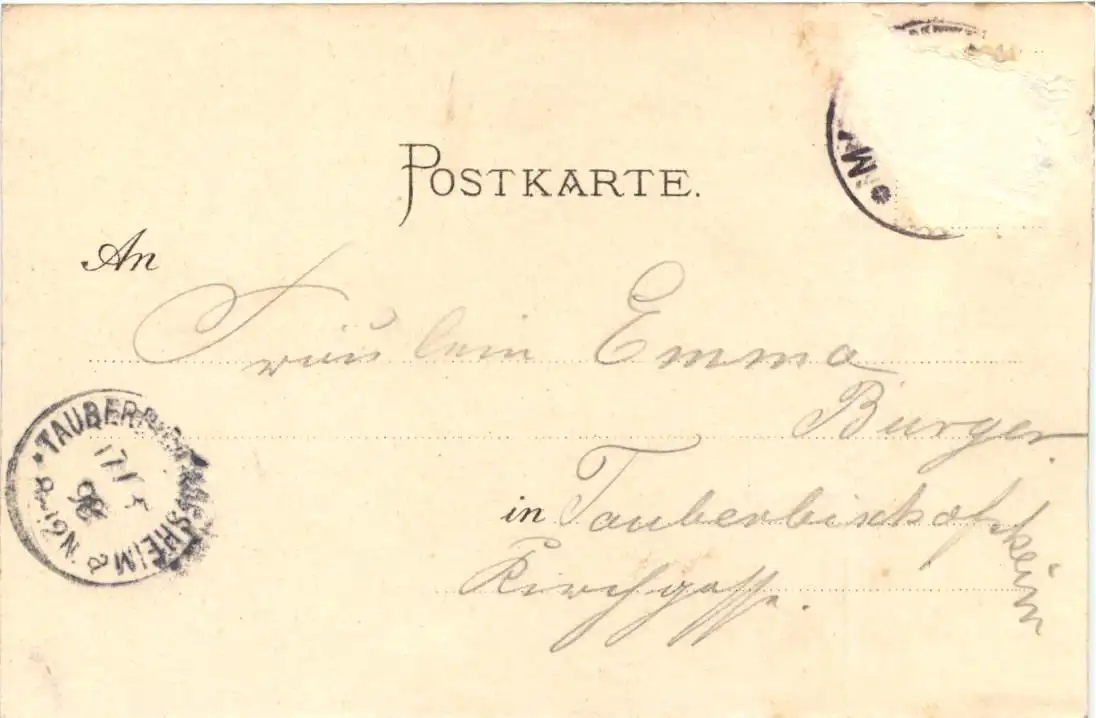 POSTKARTE.
An
Fräulein Emma
Burger
in Tauberbischofsheim
Kirchgasse.
TAUBERBISCHOFSHEIM
17
98
8-12 N.
a
M